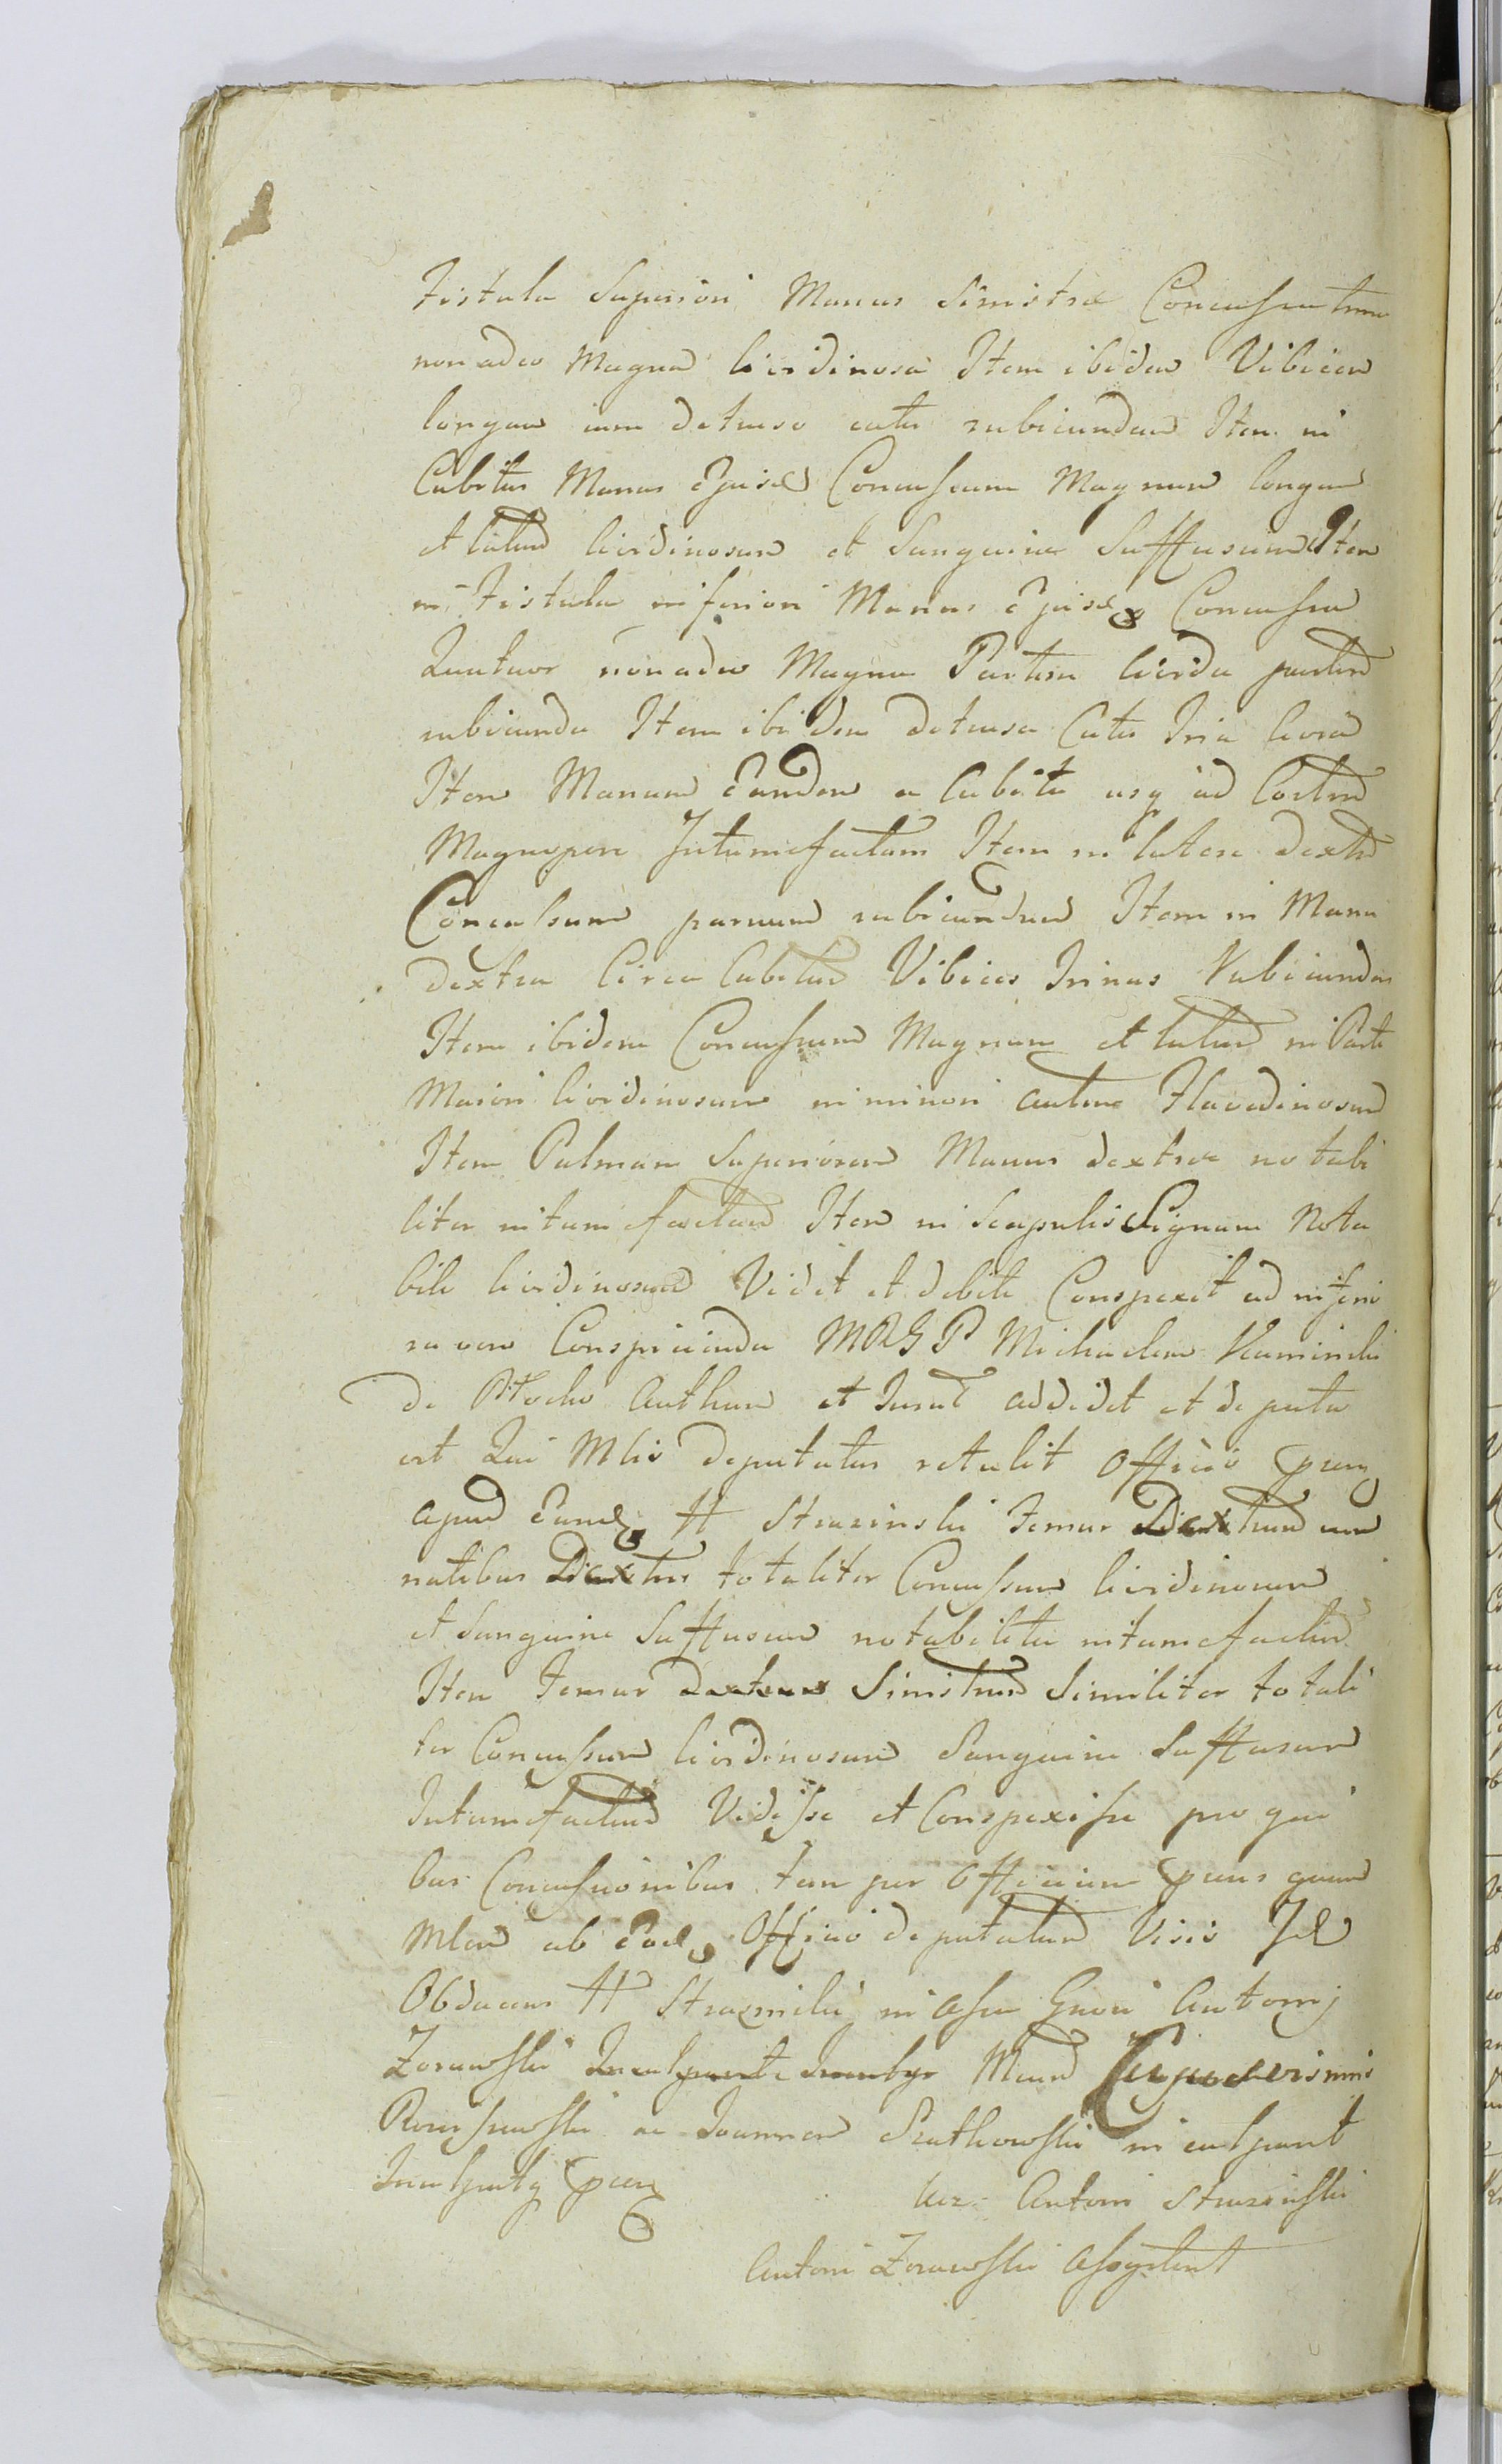 Fistula Superiori Manus Sinistræ Concussuram
non adeo Magna livdinosa Item ibidem Vibicem
longam cum detruso cute rubicundam Item in
Cubitu Manus Ejusd Concussum Magnum longum
et latum livdinosum et Sanguine Suffusum Item
in Fistula inferiori Manus Ejusd Concussa
Quatuor non adeo Magna Partim livida partim
rubicunda Item ibidem detrusa Cutis Tria livra
Item Manum Eandem a Cubitu usq ad Costam
Magnopere Intumefactam Item in latere dextro
Concussum parvum rubicundum Item in Manu
dextra Circa Cubitum Vibices Trinas Rubicundas
Item ibidem Concussum Magnum et latum in Parte
Maiori livdinosum in minori autem Flavedinosum
Item Palmam Superiorem Manus dextræ notabi
liter intumefactam Item in Scapulis Signum Nota
bile livdinosum Vidit et debite Conspexit ad inferio
ra vero Conspicienda MRGP Michaelem Kaminski
de Authum et Jurat addidit et deputa
vit Qui Mlis deputatus retulit Officio pnng
apud Eund H Strasinski Femur Dextrum cum
natibus Dextris totaliter Concussum livdinosum
et Sanguine Suffusum notabiliter intumefactum
Item Femur Sinistrum Similiter totali
ter Concussum livdinosum Sanguine Suffusum
Intumefactum Vidisse et Conspexisse pro qui
bus Concussionibus tam per Officium pnns quam
Mlem ab Eod Officio deputatum Visis Jd
Obducens H Strasinski in assa Gnosi Antonij
Zorawski Micnd
ac Joannem Szutkowski inculpavit
Inculpatq pnng
Antoni Strasinski
Antoni Zorawski Assystent